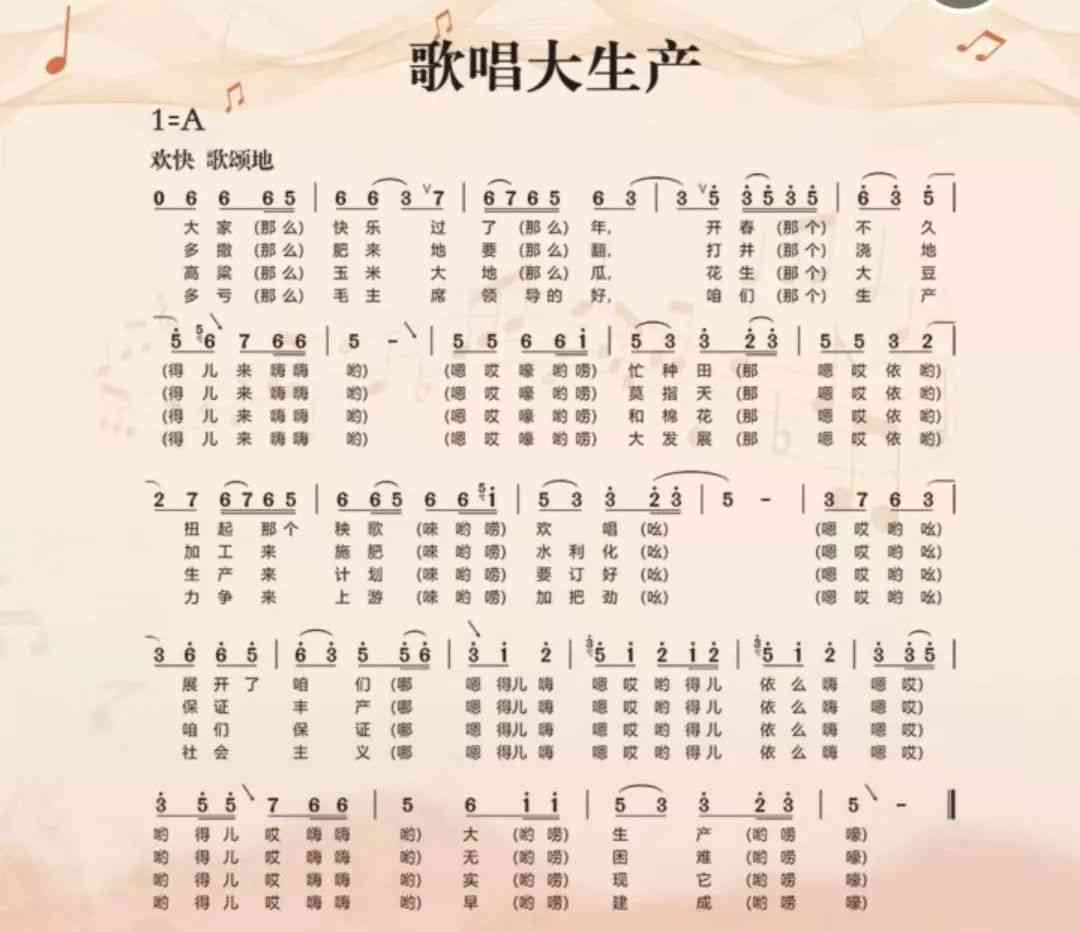 歌唱大生产
1=A
欢快 歌颂地
0 6 6 6 5 | 6 6 3 7 | 6 7 6 5 6 3 | 3 5̇ 3̇ 5̇ 3̇ 5̇ | 6̇ 3̇ 5̇ |
大 家 (那 么) 快 乐 过 了 (那 么) 年, 开 春 (那 个) 不 久
多 撒 (那 么) 肥 来 地 要 (那 么) 翻, 打 井 (那 个) 浇 地
高 粱 (那 么) 玉 米 大 地 (那 么) 瓜, 花 生 (那 个) 大 豆
多 亏 (那 么) 毛 主 席 领 导 的 好, 咱 们 (那 个) 生 产
5̇ 5 6̇ 7 6 6 | 5 - | 5 5 6 6 i̇ | 5 3 3̇ 2̇ 3̇ | 5 5 3 2 |
(得 儿 来 嗨 嗨 哟) (嗯 哎 嚎 哟 唠) 忙 种 田 (那 嗯 哎 依 哟)
(得 儿 来 嗨 嗨 哟) (嗯 哎 嚎 哟 唠) 莫 指 天 (那 嗯 哎 依 哟)
(得 儿 来 嗨 嗨 哟) (嗯 哎 嚎 哟 唠) 和 棉 花 (那 嗯 哎 依 哟)
(得 儿 来 嗨 嗨 哟) (嗯 哎 嚎 哟 唠) 大 发 展 (那 嗯 哎 依 哟)
2 7 6 7 6 5 | 6 6 5 6 6 5 i̇ | 5 3 3̇ 2̇ 3̇ | 5 - | 3 7 6 3 |
扭 起 那 个 秧 歌 (唻 哟 唠) 欢 唱 (吆) (嗯 哎 哟 吆)
加 工 来 施 肥 (唻 哟 唠) 水 利 化 (吆) (嗯 哎 哟 吆)
生 产 来 计 划 (唻 哟 唠) 要 订 好 (吆) (嗯 哎 哟 吆)
力 争 来 上 游 (唻 哟 唠) 加 把 劲 (吆) (嗯 哎 哟 吆)
3 6̇ 6̇ 5̇ | 6̇ 3̇ 5̇ 5̇ 6̇ | 3̇ i̇ 2̇ | 3̇ 5̇ i̇ 2̇ i̇ 2̇ | 3̇ 5̇ i̇ 2̇ | 3̇ 3̇ 5̇ |
展 开 了 咱 们 (哪 嗯 得儿 嗨 嗯 哎 哟 得 儿 依 么 嗨 嗯 哎)
保 证 丰 产 (哪 嗯 得儿 嗨 嗯 哎 哟 得 儿 依 么 嗨 嗯 哎)
咱 们 保 证 (哪 嗯 得儿 嗨 嗯 哎 哟 得 儿 依 么 嗨 嗯 哎)
社 会 主 义 (哪 嗯 得儿 嗨 嗯 哎 哟 得 儿 依 么 嗨 嗯 哎)
3̇ 5̇ 5̇ 7 6 6 | 5 6 i̇ i̇ | 5 3 3̇ 2̇ 3̇ | 5 - ‖
哟 得 儿 哎 嗨 嗨 哟) 大 (哟 唠) 生 产 (哟 唠 嚎)
哟 得 儿 哎 嗨 嗨 哟) 无 (哟 唠) 困 难 (哟 唠 嚎)
哟 得 儿 哎 嗨 嗨 哟) 实 (哟 唠) 现 它 (哟 唠 嚎)
哟 得 儿 哎 嗨 嗨 哟) 早 (哟 唠) 建 成 (哟 唠 嚎)